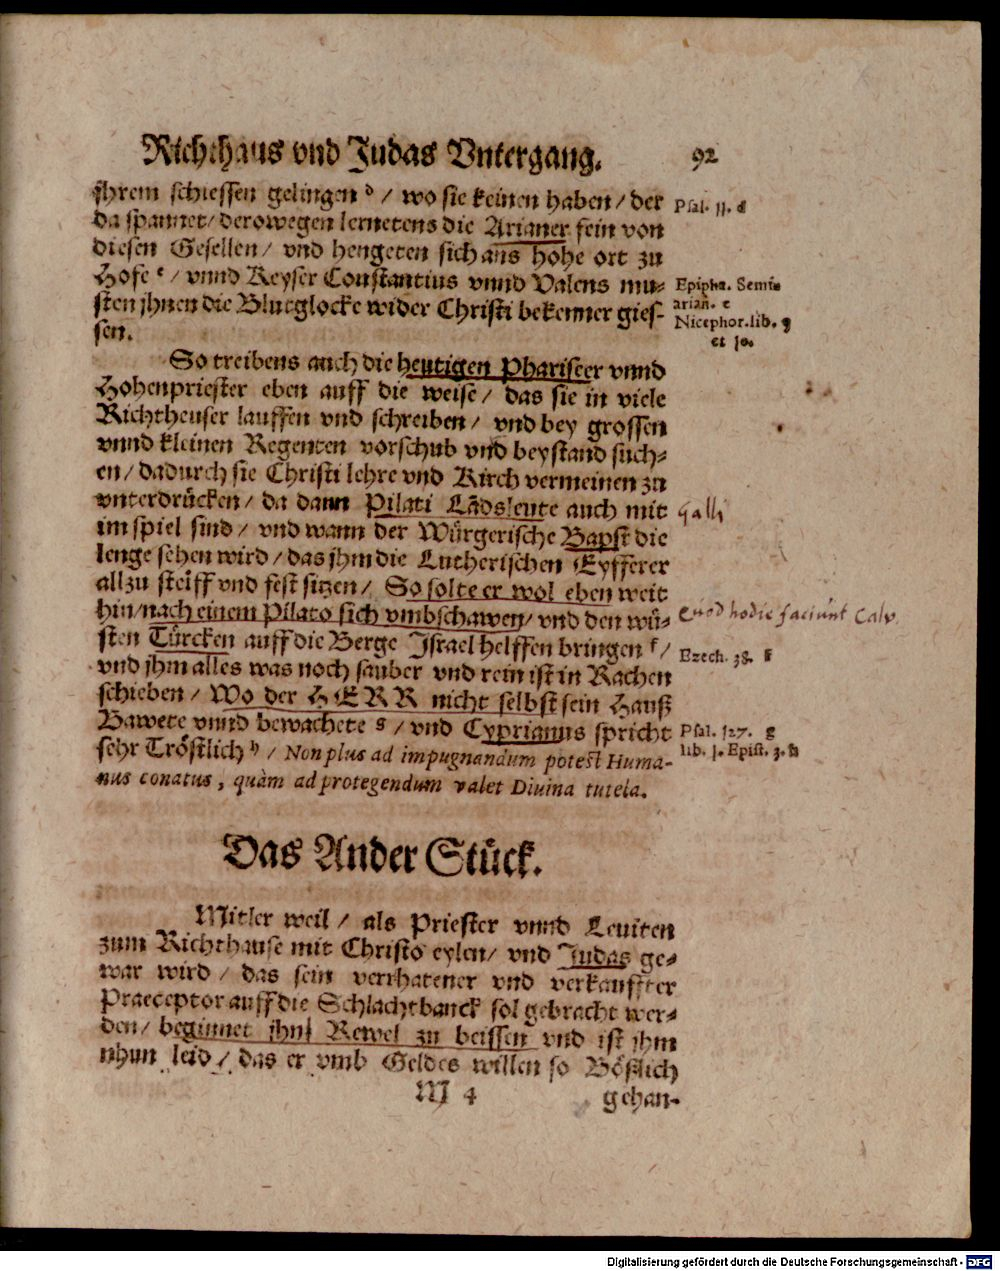 Richthaus vnd Judas Vntergang. 92
jhrem schiessen gelingen ᵈ / wo sie keinen haben / der
Psal. 11. d
da spannet / derowegen lernetens die Arianer fein von
diesen Gesellen / vnd hengeten sich ans hohe ort zu
Hofe ᵉ / vnnd Keyser Constantius vnnd Valens mu-
Epipha. Semi-
arian̄. e
sten jhnen die Blutglocke wider Christi bekenner gies-
Nicephor. lib. 9
sen.
et 10.
So treibens auch die heutigen Phariseer vnnd
Hohenpriester eben auff die weise / das sie in viele
Richtheuser lauffen vnd schreiben / vnd bey grossen
vnnd kleinen Regenten vorschub vnd beystand such-
en / dadurch sie Christi lehre vnd Kirch vermeinen zu
vnterdrücken / da dann Pilati Lādsleute auch mit
Galli
im spiel sind / vnd wann der Würgerische Bapst die
lenge sehen wird / das jhm die Lutherischen Eyfferer
allzu steiff vnd fest sitzen / So solte er wol eben weit
hin / nach einem Pilato sich vmbschawen / vnd den wü-
Quod hodie faciunt Calv.
sten Türcken auff die Berge Israel helffen bringen ᶠ /
Ezech. 38. f
vnd jhm alles was noch sauber vnd rein ist in Rachen
schieben / Wo der HERR nicht selbst sein Hauß
Bawete vnnd bewachete ᵍ / vnd Cyprianus spricht
Psal. 127. g
sehr Tröstlich ʰ / Non plus ad impugnandum potest Huma-
lib. 1. Epist. 3. h
nus conatus, quàm ad protegendum valet Diuina tutela.
Das Ander Stück.
Mitler weil / als Priester vnnd Leuiten
zum Richthause mit Christo eylen / vnd Judas ge-
war wird / das sein verrhatener vnd verkauffter
Praeceptor auff die Schlachtbanck sol gebracht wer-
den / beginnet jhn Rewel zu beissen vnd ist jhm
nhun leid / das er vmb Geldes willen so Bößlich
M 4 gehan-
Digitalisierung gefördert durch die Deutsche Forschungsgemeinschaft - DFG